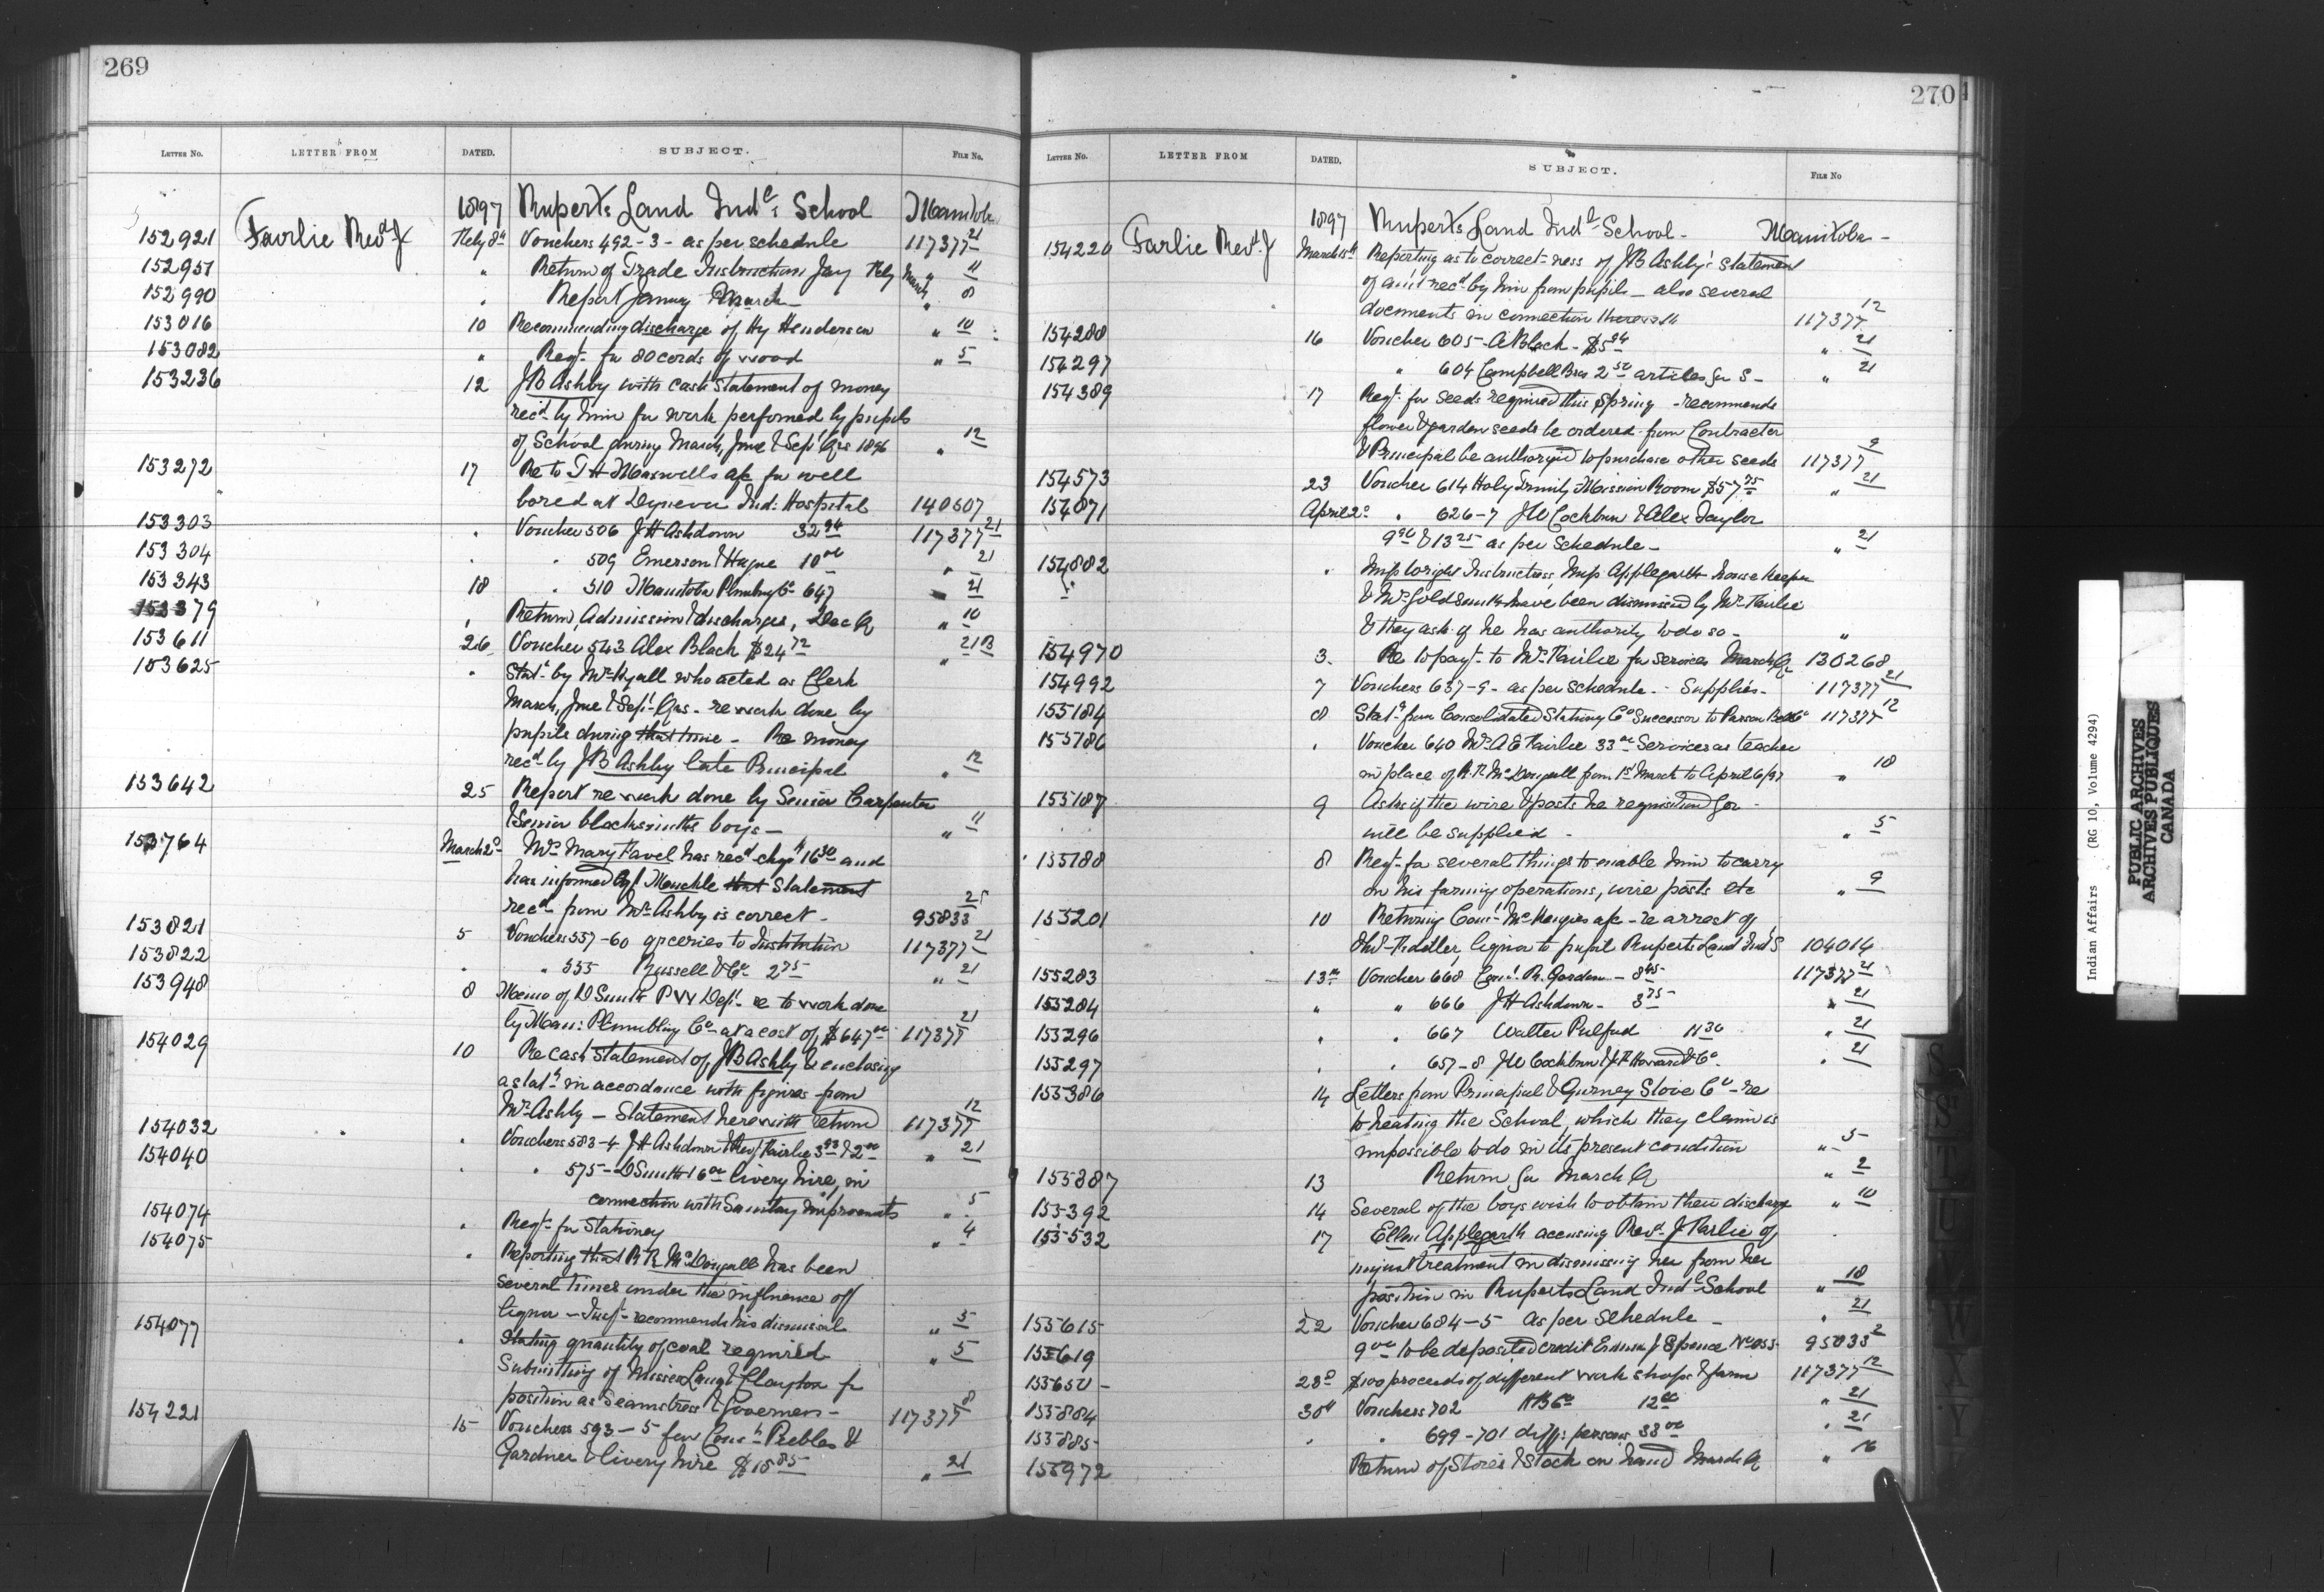 269
LETTER NO. LETTER FROM DATED. SUBJECT. FILE NO.
1897 Ruperts Land Indl School Manitoba
152921 Fairlie Revd J Feby 8th Vouchers 492-3- as per schedule 117377 21
152951 " Return of Trade Instruction Jany Feby March " 11
152990 " Report Januy March " 8
153016 10 Recommending discharge of Hy Henderson " 10
153082 " Reqt. for 80 cords of wood " 5
153236 12 JB Ashby with cash statement of money
recd by him for work performed by pupils
of School during March, June & Sept Qrs 1896 " 12
153272 17 Re to T H Maxwells a/c for well
bored at Dynevor Ind. Hospital 140607
153303 " Voucher 506 J H Ashdown 32 94 117377 21
153304 " " 509 Emerson & Hague 10 00 " 21
153343 18 " 510 Manitoba Plumbing Co 647 " 21
153379 " Return, Admission & discharges, Dec Q " 10
153611 26 Voucher 543 Alex Black $24 72 " 21
153625 " Statt by Mr Hyall who acted as Clerk
March, June & Sept Qrs - re work done by
pupils during that time - Re money
recd by JB Ashby late Principal " 12
153642 25 Report re work done by Senior Carpenter
& Senior blacksmiths boys - " 11
153764 March 2d Mrs Mary Favel has recd chqe 16 30 and
has informed Agt Muckle that Statement
recd from Mr Ashby is correct - 95833 25
153821 5 Vouchers 557-60 groceries to Institution 117377 21
153822 " " 555 Russell & Co 2 75 " 21
153948 8 Memo of D Smith P W Dept. re to work done
by Man: Plumbling Co at a cost of $647 00 117377 21
154029 10 Re cash Statement of JB Ashby & enclosing
a statt in accordance with figures from
Mr Ashby - Statement herewith return 117377 12
154032 " Vouchers 583-4 J H Ashdown & Revd J Fairlie 3 93 & 2 00 " 21
154040 " " 575 - D Smith 16 00 livery hire, in
connection with Sanitary Improvements " 5
154074 " Reqt. for Stationery " 4
154075 " Reporting that R R McDougall has been
several times under the influence off
liquor - Inspt. recommends his dismissal " 5
154077 " Stating quantity of coal required " 5
Submitting of Misses Lang & Clayton for
position as Seamstress & Governess - 117377 8
154221 15 Vouchers 593-5 few Peebles &
Gardner & livery hire $18 85 " 21
270
LETTER NO. LETTER FROM DATED. SUBJECT. FILE NO
1897 Ruperts Land Indl School - Manitoba -
154220 Farlie Revd. J March 15th Reporting as to correct-ness of JB Ashby's Statement
of amt recd by him from pupils - also several
documents in connection therewith 117377 12
154288 16 Voucher 605 - A Black - $5 94 " 21
154297 " 604 Campbell Bros 2 50 articles for S - " 21
154389 17 Reqt. for Seeds required this Spring - recommends
flower & garden seeds be ordered from Contractor
& Principal be authorized to purchase other seeds 117377 9
154573 23 Voucher 614 Holy Trinity Mission Room $57 75 " 21
154871 April 2d " 626-7 JW Cockburn & Alex Taylor
9 90 & 13 25 as per Schedule - " 21
154882 " Miss Wright Instructress, Miss Applegarth house keeper
& Mr Goldsmith have been dismissed by Mr Fairlie
& they ask if he has authority to do so - "
154970 3 Re to payt. to Mr Fairlie for services March Q 130268
154992 7 Vouchers 637-9 - as per schedule - Supplies - 117377 21
155184 8 Statt from Consolidated Stationy Co Successor to Parson Bell Co 117377 12
155186 " Voucher 640 Mrs A E Fairlie 33 00 Services as teacher
in place of R. R. McDougall from 1st March to April 6/97 " 18
155187 9 Asks if the wire & posts he requisitioned for -
will be supplied - " 5
155188 8 Reqt. for several things to enable him to carry
on his farming operations, wire posts etc " 9
155201 10 Returning Const McKenzies a/c - re arrest of
Fidler, liquor to pupil Ruperts Land Ind S 104014
155283 13th Voucher 668 Const R. Gordon - 8 45 117377 21
155284 " " 666 J H Ashdown - 3 75 " 21
155296 " " 667 Walter Pulford 11 30 " 21
155297 " " 657-8 JW Cockburn & J H Howard & Co " 21
155386 14 Letters from Principal & Gurney Stove Co - re
to heating the School, which they claim is
impossible to do in its present condition " 5
155387 13 Return for March Q " 2
155392 14 Several of the boys wish to obtain their discharge " 10
155532 17 Ellen Applegarth accusing Revd J Farlie of
unjust treatment in dismissing her from her
position in Ruperts Land Indl School " 18
155615 22 Voucher 684-5 as per Schedule - " 21
155619 9 00 to be deposited credit Spence No 955 - 95833 2
155650 - 28d $100 proceeds of different work shops & farm 117377 12
155884 30th Vouchers 702 HB Co 12 00 " 21
155885 " " 699-701 difft persons 33 00 " 21
155972 Return of Stores & Stock on hand March Q " 16
S
ST
T
U
V
W
X Y
Indian Affairs (RG 10, Volume 4294)
PUBLIC ARCHIVES
ARCHIVES PUBLIQUES
CANADA